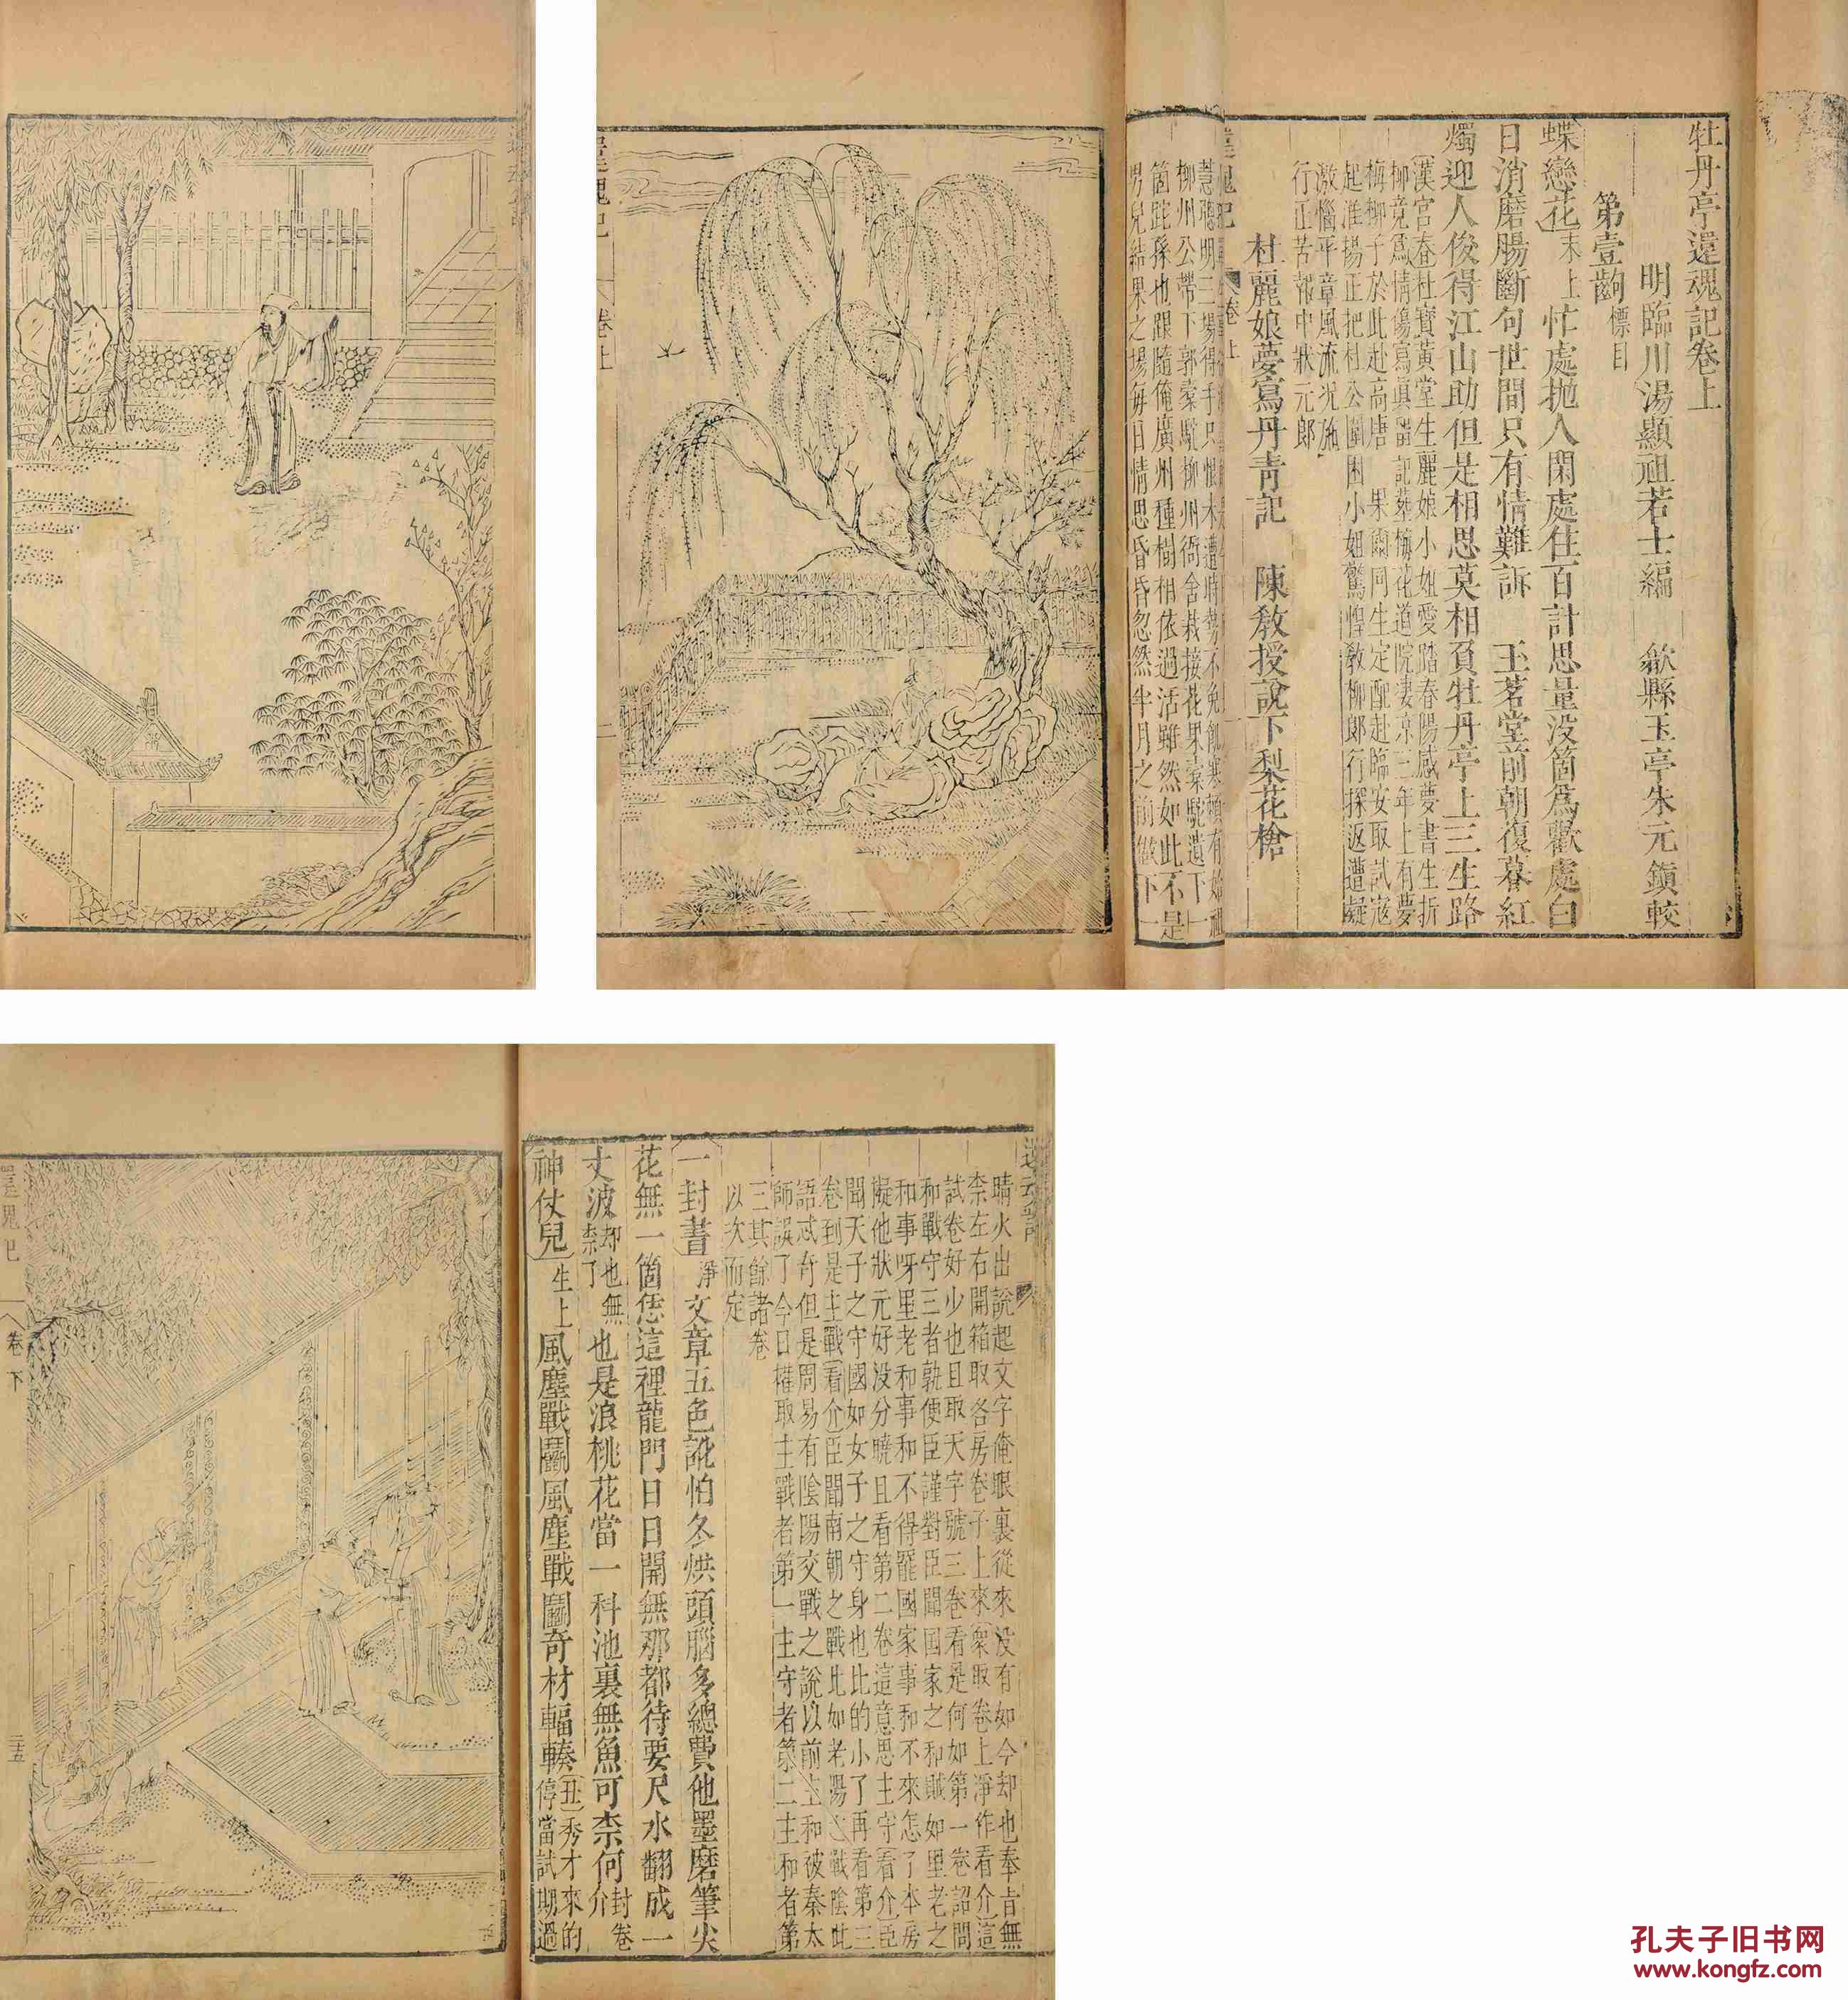 牡丹亭還魂記卷上
明臨川湯顯祖若士編　歙縣玉亭朱元鎮較
第壹齣 標目
蝶戀花 末上 忙處拋人閑處住百計思量沒箇為歡處白
日消磨腸斷句世間只有情難訴　玉茗堂前朝復暮紅
燭迎人俊得江山助但是相思莫相負牡丹亭上三生路
漢宮春杜寶黃堂生麗娘小姐愛踏春陽感夢書生折
柳竟為情傷寫真留記葬梅花道院淒凉三年上有夢
梅柳子於此赴高唐　果爾回生定配赴臨安取試寇
起淮揚正把杜公圍困小姐驚惶教柳郎行探返遭疑
激惱平章風流況施
行正苦報中狀元郎
杜麗娘夢寫丹青記　陳教授說下梨花槍
還魂記
卷上
慧聰明三場得手只恨未遭時勢不免飢寒賴有始祖
柳州公帶下郭橐駝柳州衙舍栽接花果橐駝遺下一
箇跎孫也跟隨俺廣州種樹相依過活雖然如此不是
男兒結果之場每日情思昏昏忽然半月之前做下一
還魂記
卷上
二
晴火出說起文字俺眼裏從來沒有如今却也奉旨無
柰左右開箱取各房卷子上來衆取卷上淨作看介這
試卷好少也且取天字號三卷看是何如第一卷詔問
和戰守三者孰便臣謹對臣聞國家之和賊如里老之
和事呀里老和事和不得罷國家事和不來怎了本房
擬他狀元好沒分曉且看第二卷這意思主守看介臣
聞天子之守國如女子之守身也比的小了再看第三
卷到是主戰看介臣聞南朝之戰北如老陽之戰陰此
語忒奇但是周易有陰陽交戰之說以前主和被秦太
師誤了今日權取主戰者第一主守者第二主和者第
三其餘諸卷
以次而定
一封書 淨 文章五色訛怕冬烘頭腦多總費他墨磨筆尖
花無一箇恁這裡龍門日日開無那都待要尺水翻成一
丈波 却也無柰了 也是浪桃花當一科池裏無魚可柰何 封卷介
神仗兒 生上 風塵戰鬭風塵戰鬭奇材輻輳 丑 秀才來的停當試期過
還魂記
卷下
二十五
孔夫子旧书网
www.kongfz.com